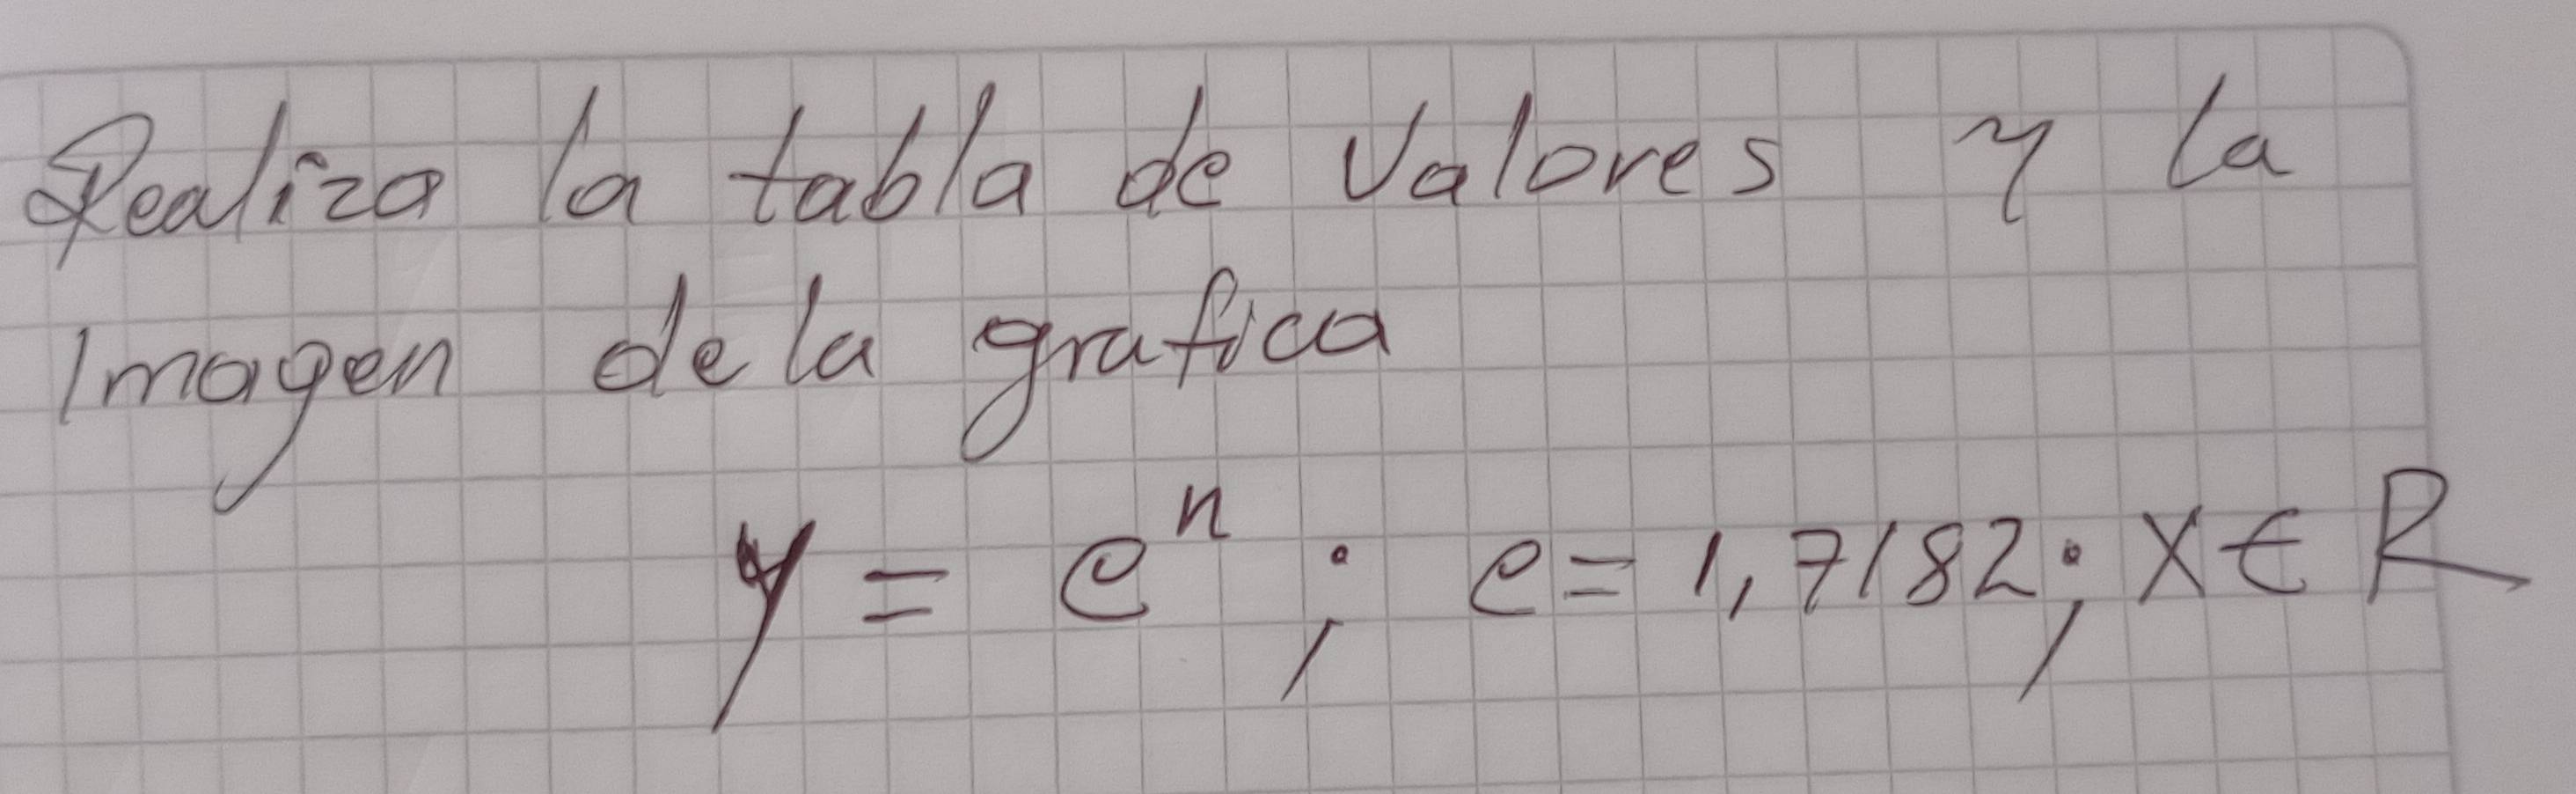 Realiza la tabla de Valores y la
Imagen de la grafica
y = e^n ; e = 1,7182 ; X ∈ R